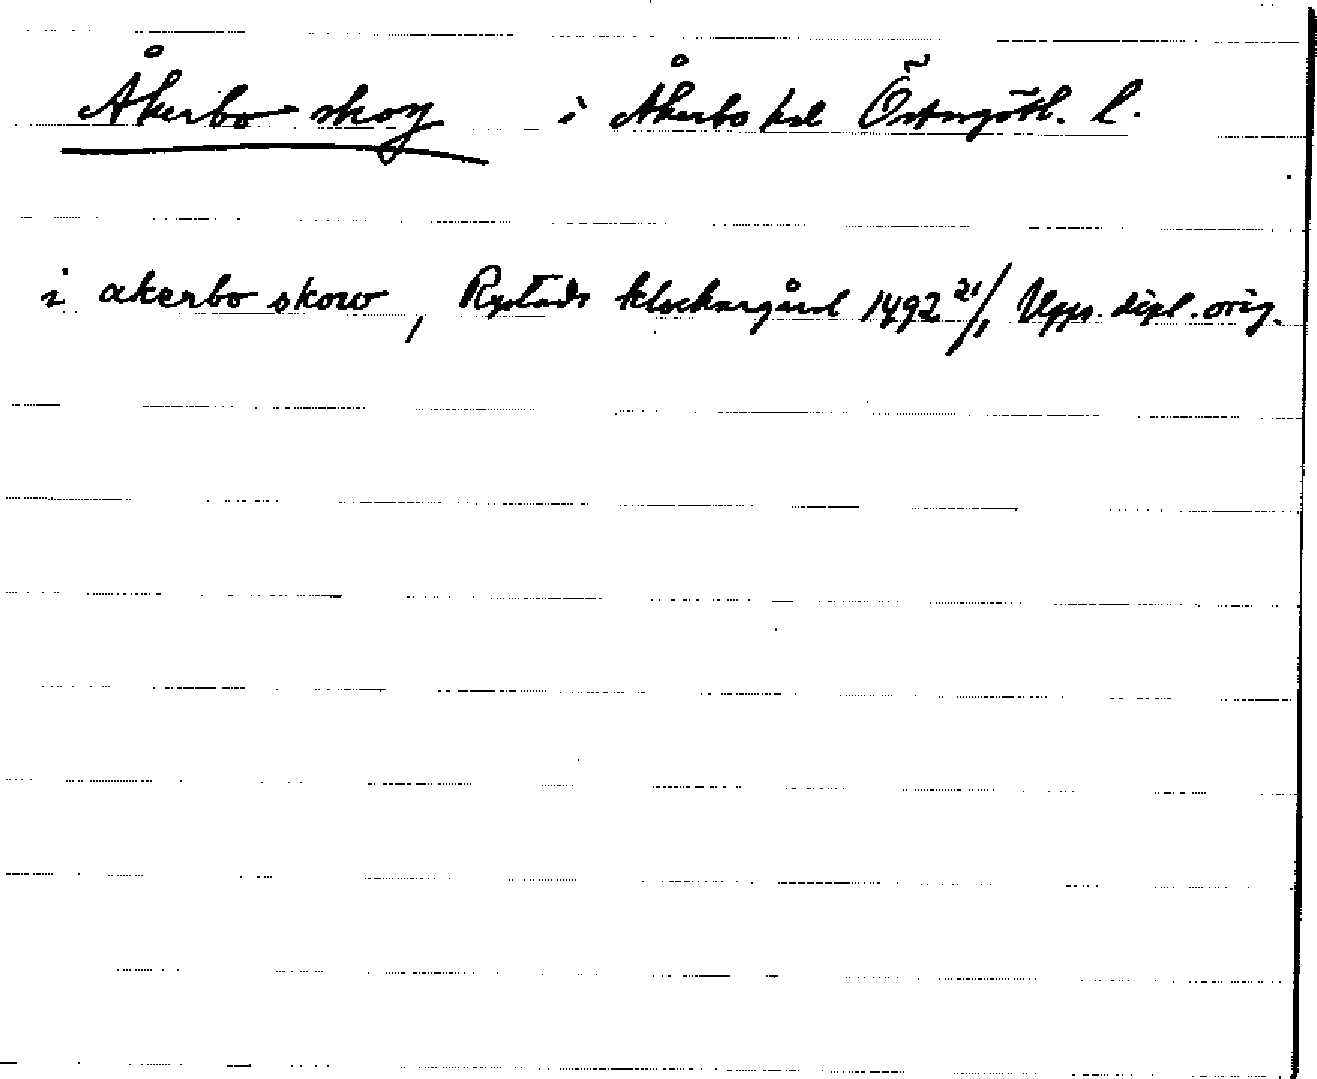 Åkerbo skog i Åkerbo hd Östergötl. l.
i akerbo skow, Rystads klockargård 1492 21/1, Upps. dipl. orig.